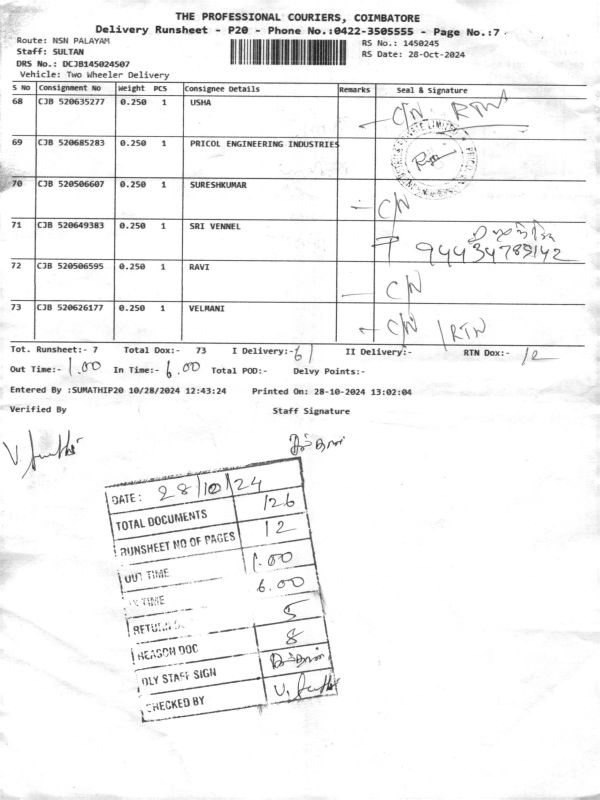 THE PROFESSIONAL COURIERS, COIMBATORE
Delivery Runsheet - P20 - Phone No.:0422-3505555 - Page No.:7
Route: NSN PALAYAM
RS No.: 1450245
Staff: SULTAN
RS Date: 28-Oct-2024
DRS No.: DCJB145024507
Vehicle: Two Wheeler Delivery
S No Consignment No Weight PCS Consignee Details Remarks Seal & Signature
68 CJB 520635277 0.250 1 USHA C/N RTN
69 CJB 520685283 0.250 1 PRICOL ENGINEERING INDUSTRIES
70 CJB 520506607 0.250 1 SURESHKUMAR C/N
71 CJB 520649383 0.250 1 SRI VENNEL
94434785142
72 CJB 520506595 0.250 1 RAVI C/N
73 CJB 520626177 0.250 1 VELMANI C/N / RTN
Tot. Runsheet:- 7 Total Dox:- 73 I Delivery:- 61 II Delivery:- RTN Dox:- 12
Out Time:- 1.00 In Time:- 6.00 Total POD:- Delvy Points:-
Entered By :SUMATHIP20 10/28/2024 12:43:24 Printed On: 28-10-2024 13:02:04
Verified By Staff Signature
DATE: 28/10/24
TOTAL DOCUMENTS 126
RUNSHEET NO OF PAGES 12
OUT TIME 1.00
TIME 6.00
RETURN 5
REASON DOC 8
DLY STAFF SIGN
CHECKED BY